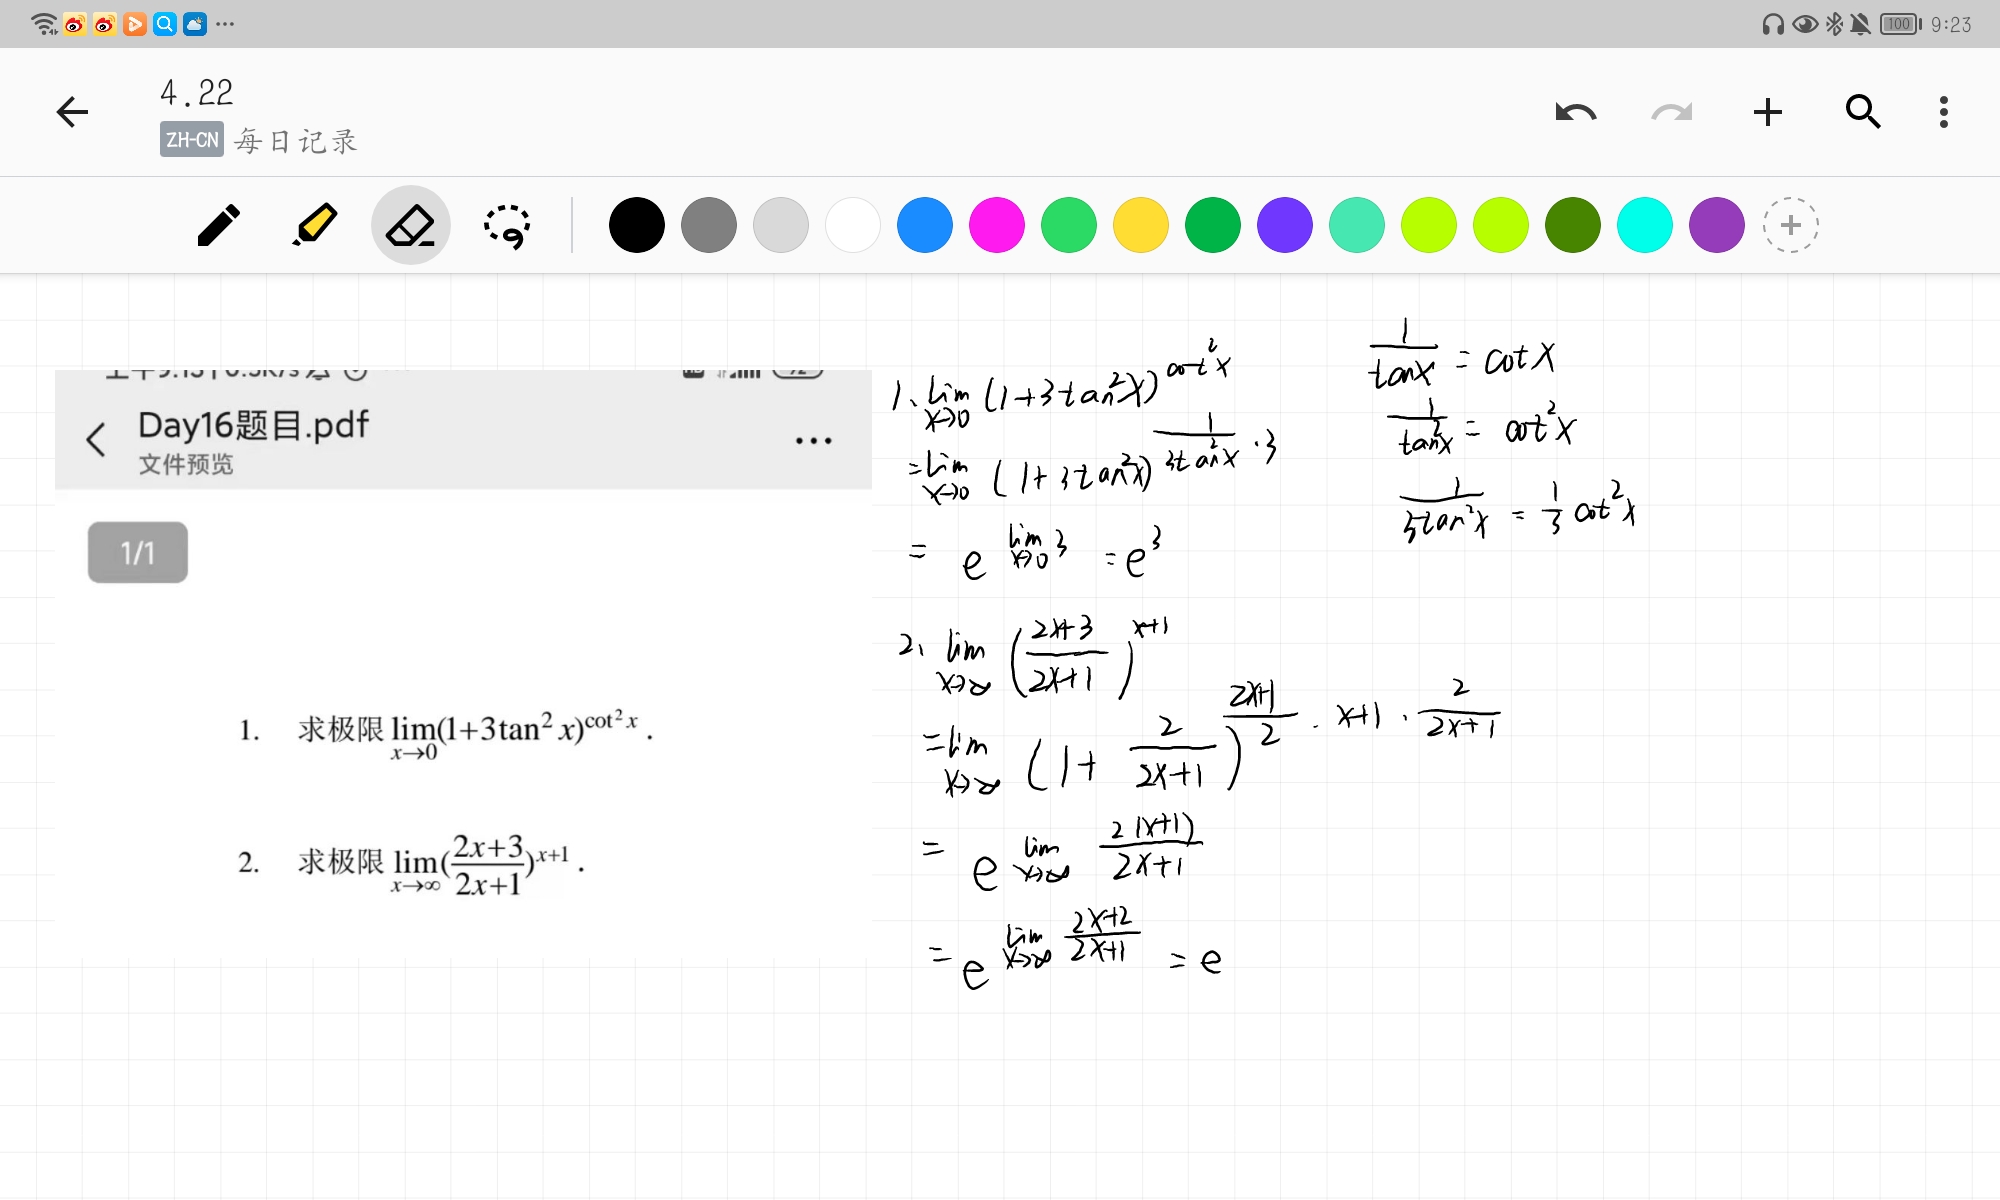 100 9:23
4.22
ZH-CN 每日记录
Day16题目.pdf
文件预览
1/1
1. 求极限 lim(1+3tan² x)^cot² x .
x→0
2. 求极限 lim((2x+3)/(2x+1))^x+1 .
x→∞
1、lim (1+3tan²x)^cot²x
x→0
=lim (1+3tan²x)^1/(3tan²x) ·3
x→0
= e^lim 3 = e³
x→0
1/tanx = cotx
1/tan²x = cot²x
1/3tan²x = 1/3 cot²x
2、lim ((2x+3)/(2x+1))^x+1
x→∞
=lim (1+ 2/(2x+1))^(2x+1)/2 · x+1 · 2/(2x+1)
x→∞
= e^lim 2(x+1)/(2x+1)
x→∞
= e^lim (2x+2)/(2x+1) = e
x→∞